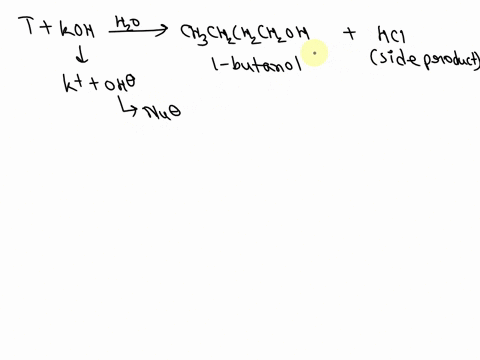 T + KOH H₂O → CH₃CH₂CH₂CH₂OH + HCl
↓ 1-butanol (side product)
K⁺ + OH⊖
↳ Nu⊖